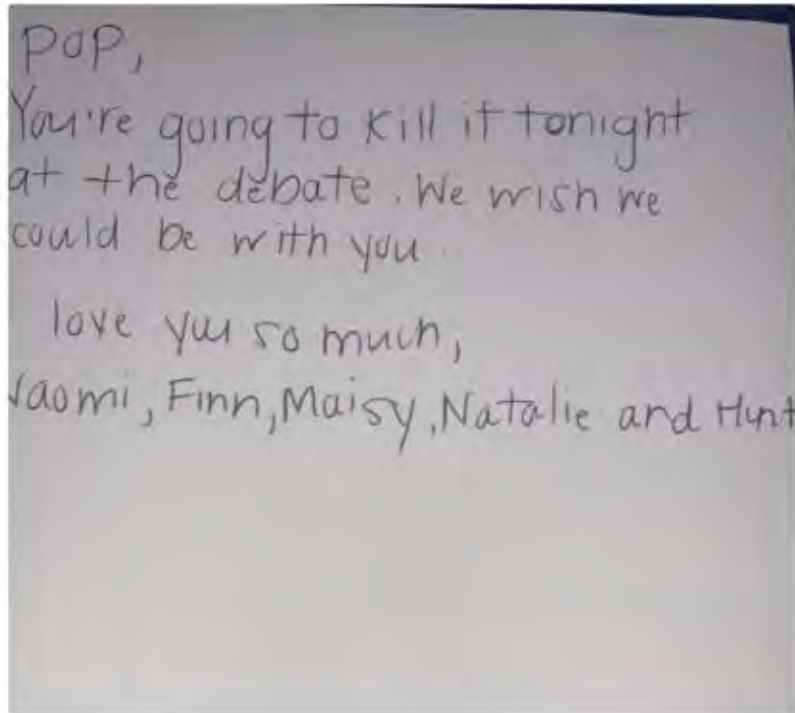 Pop,
You're going to kill it tonight
at the debate. We wish we
could be with you.
love you so much,
Naomi, Finn, Maisy, Natalie and Hunt